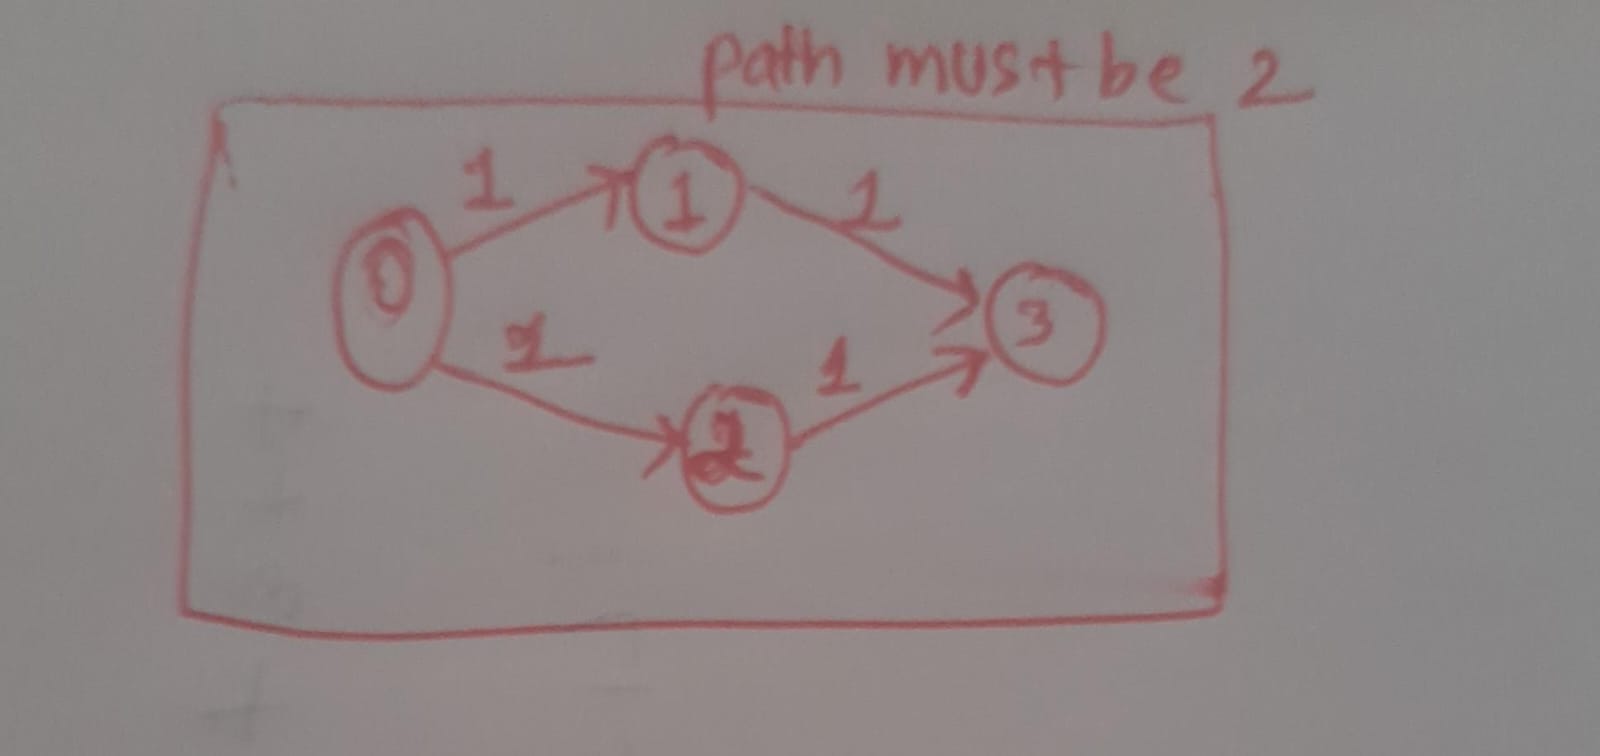 path must be 2
1
1
1
0
3
1
1
2